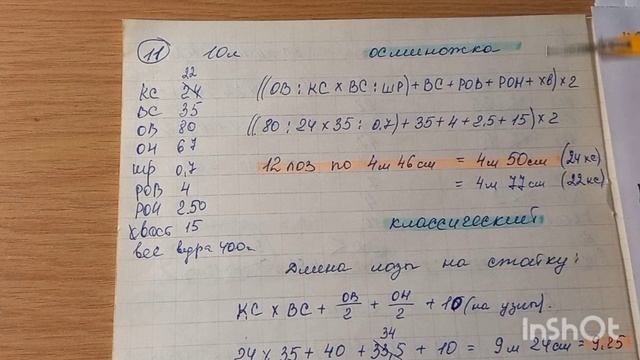 11 10л осминожка
22
КС 24 ((ОВ : КС × ВС : ШР) + ВС + РОВ + РОН + ХВ) × 2
ВС 35
ОВ 80 ((80 : 24 × 35 : 0,7) + 35 + 4 + 2.5 + 15) × 2
ОН 67
ШР 0,7 12 лоз по 4м 46см = 4м 50см (24 КС)
РОВ 4 = 4м 77см (22 КС)
РОН 2.50
хвост 15 классический
вес ведра 400г
Длина лозы на стойку:
КС × ВС + ОВ/2 + ОН/2 + 10 (на узлы).
34
24 × 35 + 40 + 33,5 + 10 = 9м 24см = 9,25
InShot